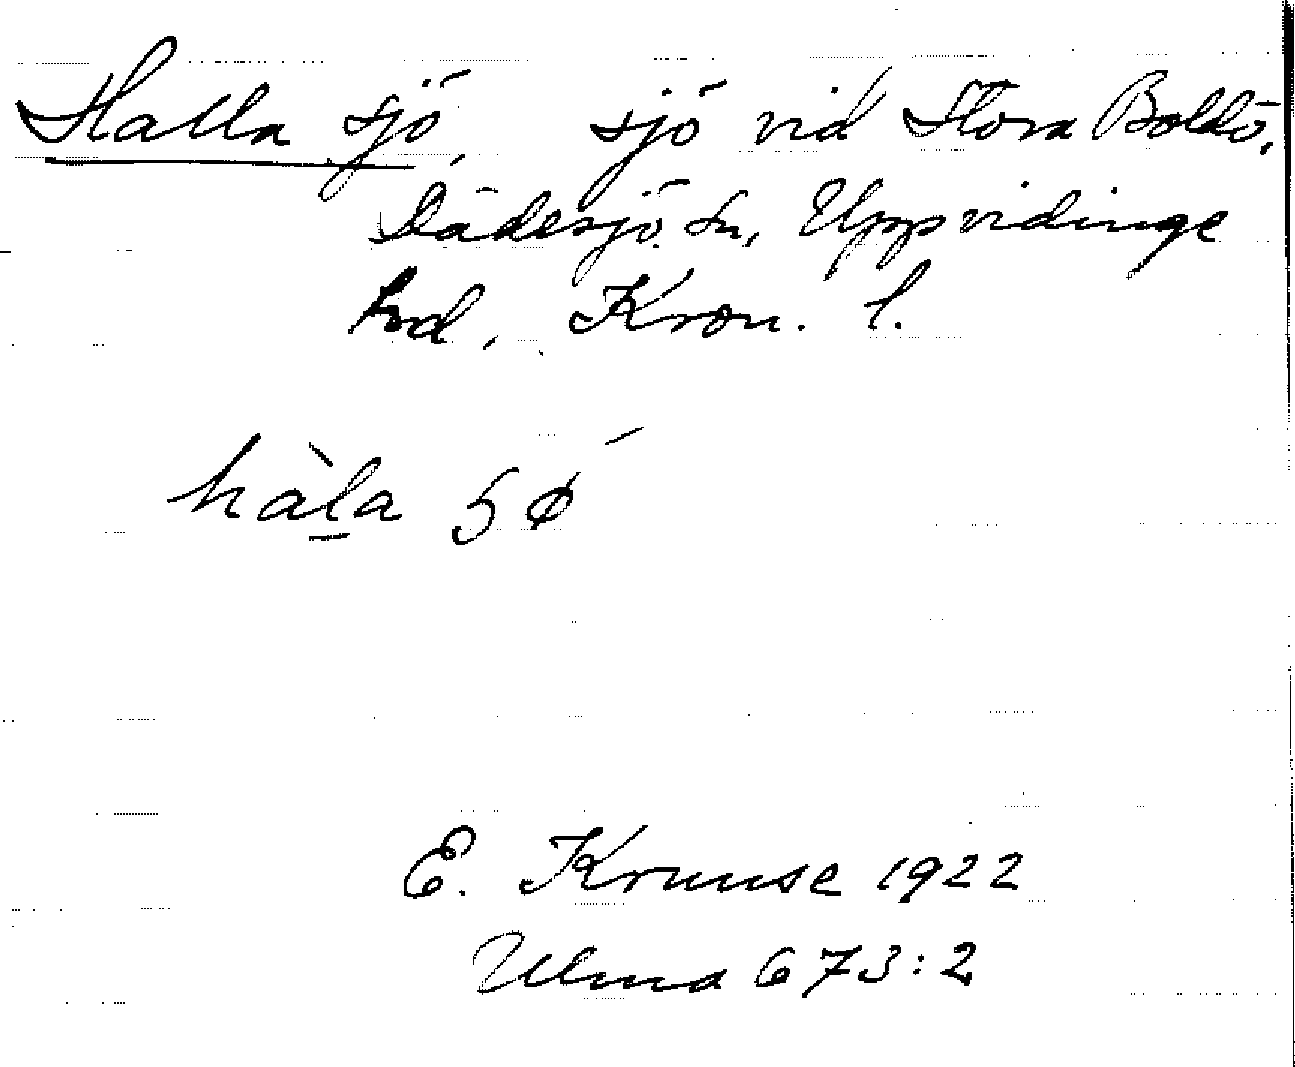 Halla sjö, sjö vid Stora Boldö,
Dädesjö sn, Uppvidinge
hrd, Kron. l.
hàl̲a
E. Kruuse 1922
Ulma 673:2